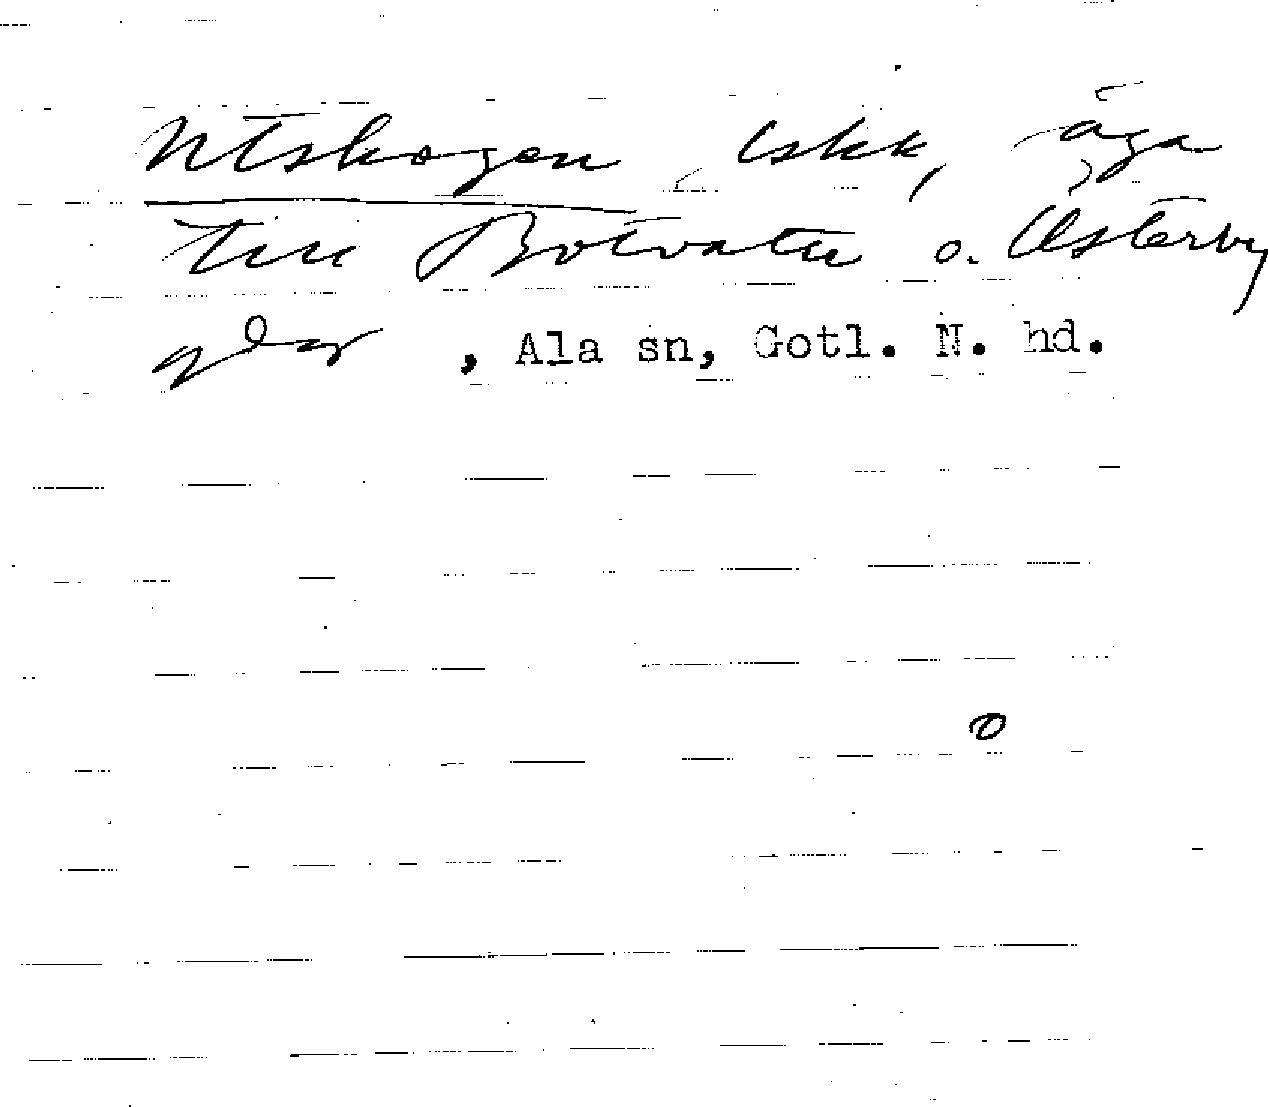 Utskogen, lskk, äga
till Botvatte o. Österby
gdar, Ala sn, Gotl. N. hd.